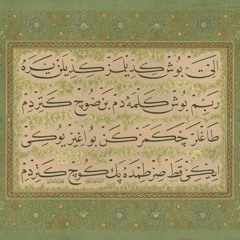 الی بوش کیدیلمز کیدیلن یره
ربم بوش کلمه دم بن صوچ کتیردم
طاغلر چکمزکن بو آغیر یوکی
ایکی قط صرطمده پك کوچ کتیردم